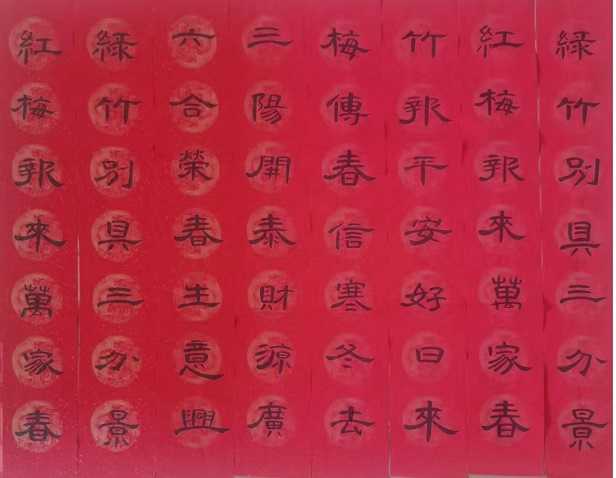 緑竹別具三分景
紅梅報來萬家春
竹報平安好日來
梅傳春信寒冬去
三陽開泰財源廣
六合榮春生意興
緑竹別具三分景
紅梅報來萬家春